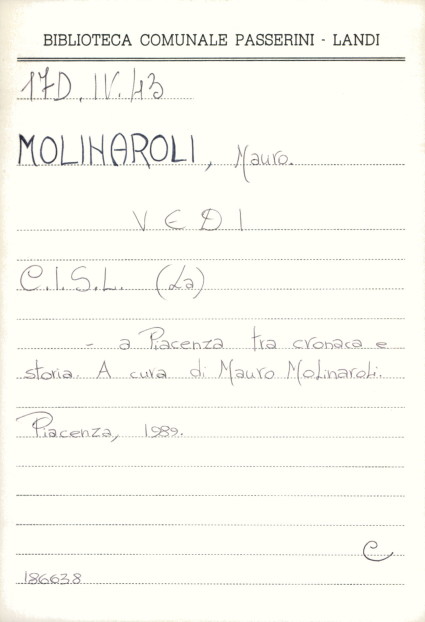 BIBLIOTECA COMUNALE PASSERINI - LANDI
17D.IV.43
MOLINAROLI, Mauro.
VEDI
C.I.S.L. (La)
- a Piacenza tra cronaca e
storia. A cura di Mauro Molinaroli.
Piacenza, 1989.
C
186638